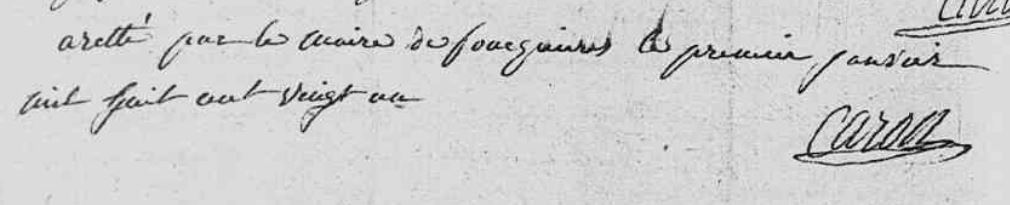 aretté par le maire de fouquieres le premier janvier
mil huit cent vingt un
caron